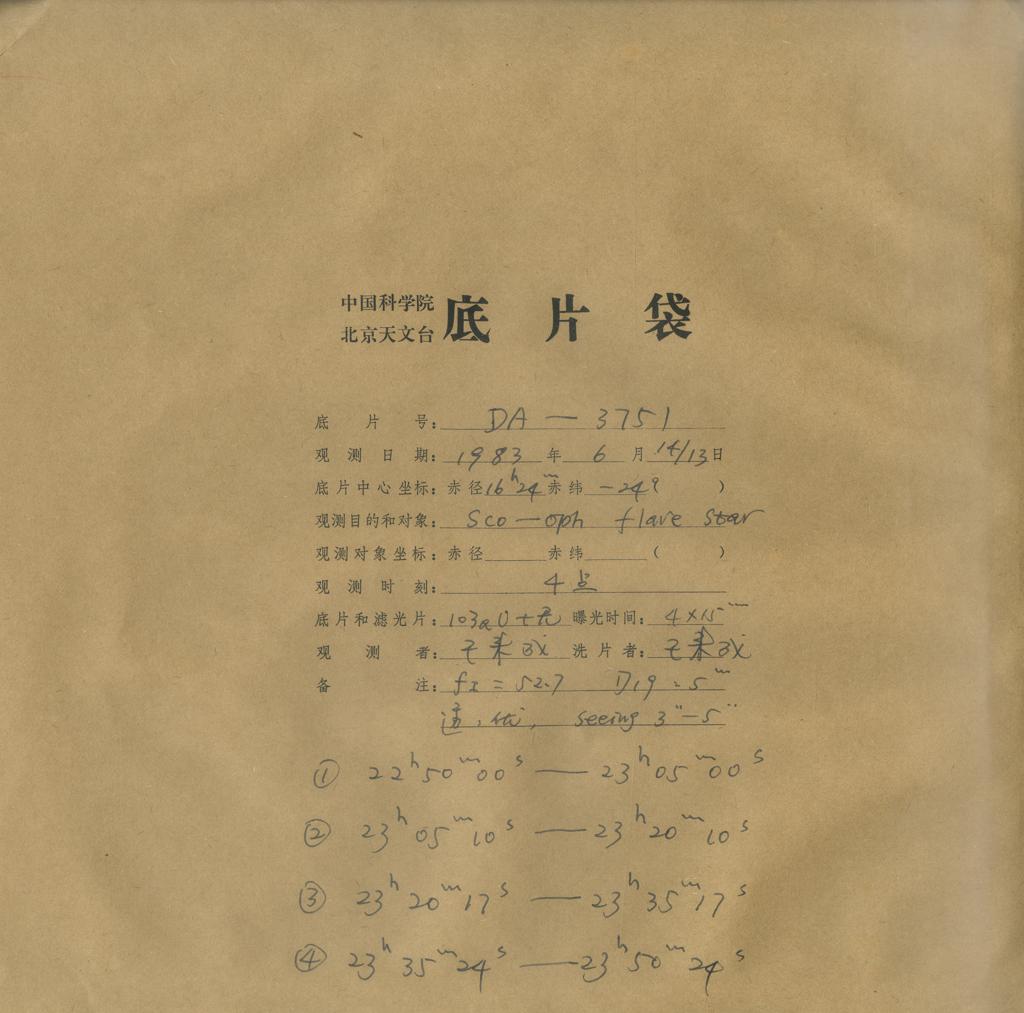 中国科学院
北京天文台
底片袋
底片号: DA — 3751
观测日期: 1983 年 6 月 14/13 日
底片中心坐标: 赤径 16h 24m 赤纬 -24° ( )
观测目的和对象: Sco — oph flare star
观测对象坐标: 赤径 赤纬 ( )
观测时刻: 4点
底片和滤光片: 103aO+无 曝光时间: 4×15m
观测者: 洗片者:
备注: fx = 52.7 D19 5m
seeing 3" — 5"
① 22h 50m 00s — 23h 05m 00s
② 23h 05m 10s — 23h 20m 10s
③ 23h 20m 17s — 23h 35m 17s
④ 23h 35m 24s — 23h 50m 24s